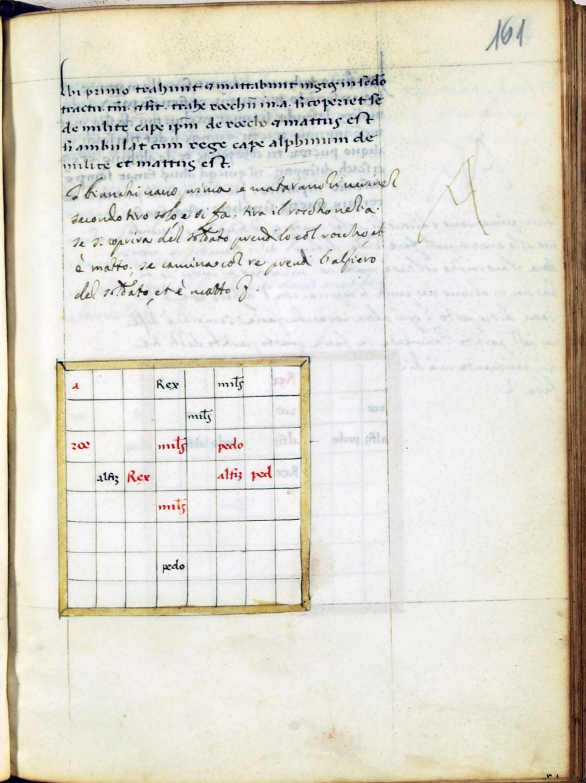 161
bi primo trahunt & mattabunt in sedo
tractu tm̃. & fit. trahe rocchũ in .a. si coperiet se
de milite cape ipm̃ de roccho & mattus est
si ambulat cum rege cape alphinum de
milite et mattus est.
I bianchi prima e
secondo tiro solo e si fa. tira il roccho nella .a.
se si copriva del soldato prendilo col roccho et
è matto. se camina col re prendi l'alfiero
del soldato, et è matto
a Rex mils
mils
roc mils pedo
alfiz Rex alfiz ped
mils
pedo